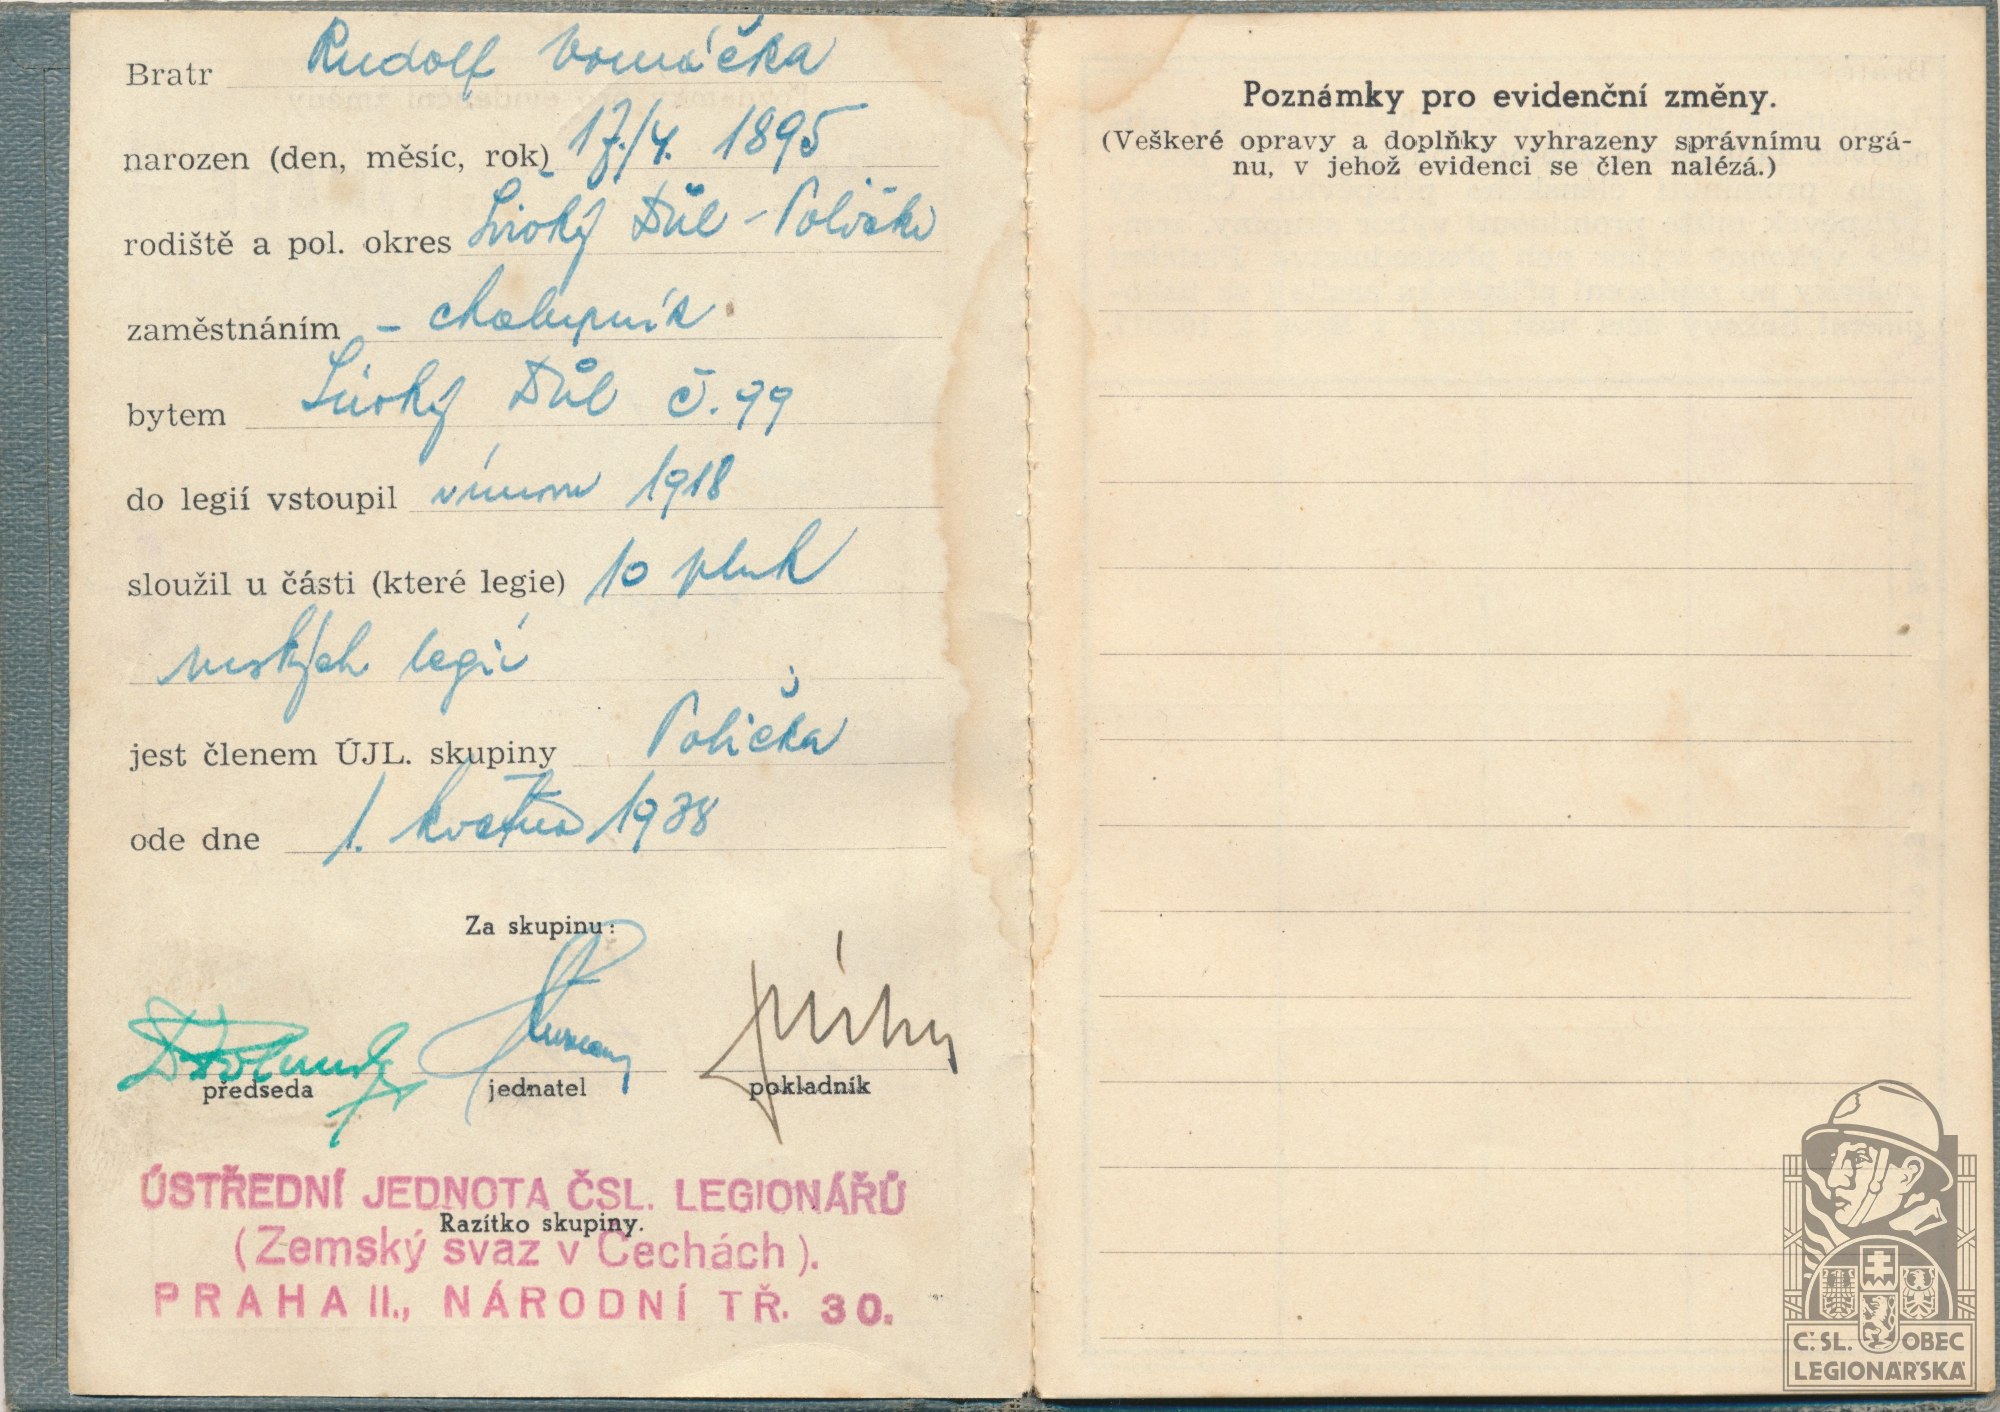 Bratr Rudolf Vomáčka
narozen (den, měsíc, rok) 17./4. 1895
rodiště a pol. okres Široký Důl - Polička
zaměstnáním - chalupník
bytem Široký Důl č. 99
do legií vstoupil v únoru 1918
sloužil u části (které legie) 10 pluk
ruských legií
jest členem ÚJL. skupiny Polička
ode dne 1. května 1938
Za skupinu:
předseda jednatel pokladník
ÚSTŘEDNÍ JEDNOTA ČSL. LEGIONÁŘŮ
Razítko skupiny.
(Zemský svaz v Čechách).
PRAHA II., NÁRODNÍ TŘ. 30.
Poznámky pro evidenční změny.
(Veškeré opravy a doplňky vyhrazeny správnímu orgá-
nu, v jehož evidenci se člen nalézá.)
Č.SL. OBEC
LEGIONÁŘSKÁ